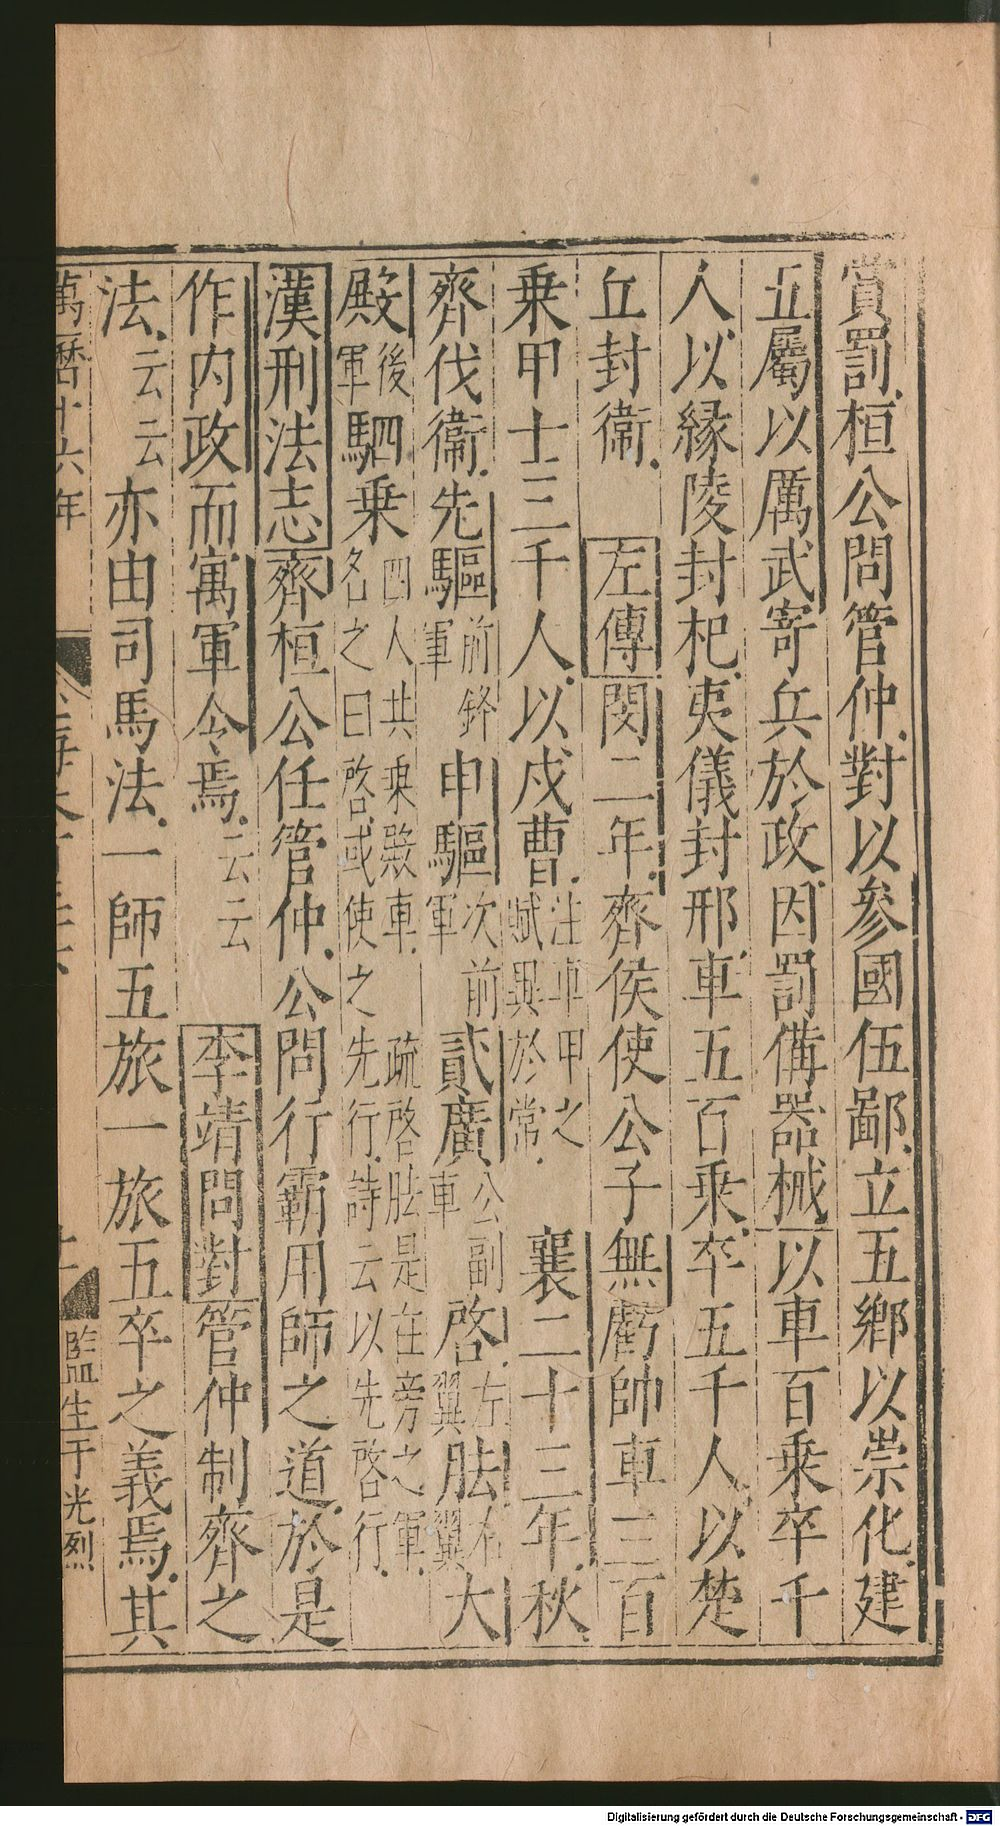 賞罰桓公問管仲對以參國伍鄙立五鄉以崇化建
五屬以厲武寄兵於政因罰備器械以車百乘卒千
人以緣陵封杞夷儀封邢車五百乘卒五千人以楚
丘封衞 左傳閔二年齊侯使公子無虧帥車三百
乘甲士三千人以戍曹注車甲之賦異於常 襄二十三年秋
齊伐衞先驅前鋒軍申驅次前軍貳廣公副車啓左翼胠右翼大
殿後軍駟乘四人共乘殿車 疏啓胠是在旁之軍名之曰啓或使之先行詩云以先啓行
漢刑法志齊桓公任管仲公問行霸用師之道於是
作内政而寓軍令焉云云 李靖問對管仲制齊之
法云云亦由司馬法一師五旅一旅五卒之義焉其
萬曆十六年
監生于光烈
Digitalisierung gefördert durch die Deutsche Forschungsgemeinschaft - DFG